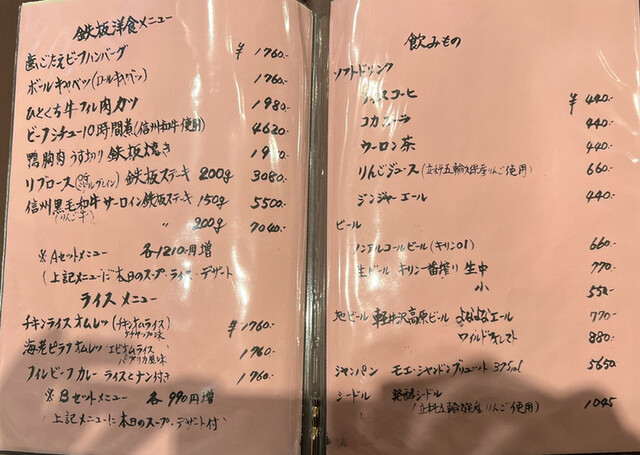 鉄板洋食メニュー
歯ごたえビーフハンバーグ ¥1760.-
ボールキャベツ(ロールキャベツ) 1760.-
ひとくち牛フィレ肉カツ 1980.-
ビーフシチュー10時間煮(信州和牛使用) 4620.-
鴨胸肉うす切り鉄板焼き
リブロース 鉄板ステーキ 200g 3080.-
信州黒毛和牛サーロイン鉄板ステーキ 150g 5500.-
(りんご牛) 〃 200g 7040.-
※Aセットメニュー 各1210.-円増
(上記メニューに本日のスープ・ライス・デザート
ライスメニュー
チキンライスオムレツ(チキンオムライス) ¥1760.-
ケチャップ味
海老ピラフオムレツ エビオムライス 1760.-
パプリカ風味
フィレビーフカレー ライスとナン付き 1760.-
※Bセットメニュー 各990円増
(上記メニューに本日のスープ・デザート付)
飲みもの
ソフトドリンク
アイスコーヒー ¥440.-
コカコーラ 440.-
ウーロン茶 440.-
りんごジュース(立科五輪久保産りんご使用) 660.-
ジンジャーエール 440.-
ビール
ノンアルコールビール(キリン01) 660.-
生ビール キリン一番搾り 生中 770.-
小 550.-
地ビール 軽井沢高原ビール よなよなエール 770.-
ワイルドフォレスト 880.-
シャンパン モエ・シャンドンブリュット 375ml 5650
シードル 発酵シードル 1045
(立科五輪久保産りんご使用)